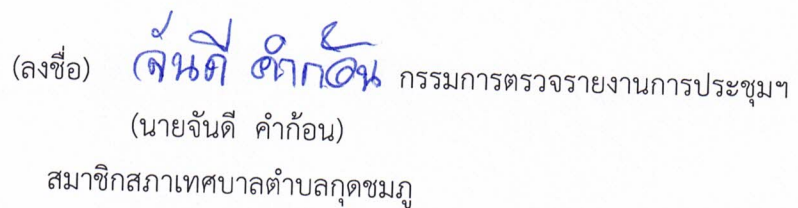 (ลงชื่อ) จันดี คำก้อน กรรมการตรวจรายงานการประชุมฯ
(นายจันดี คำก้อน)
สมาชิกสภาเทศบาลตำบลกุดชมภู